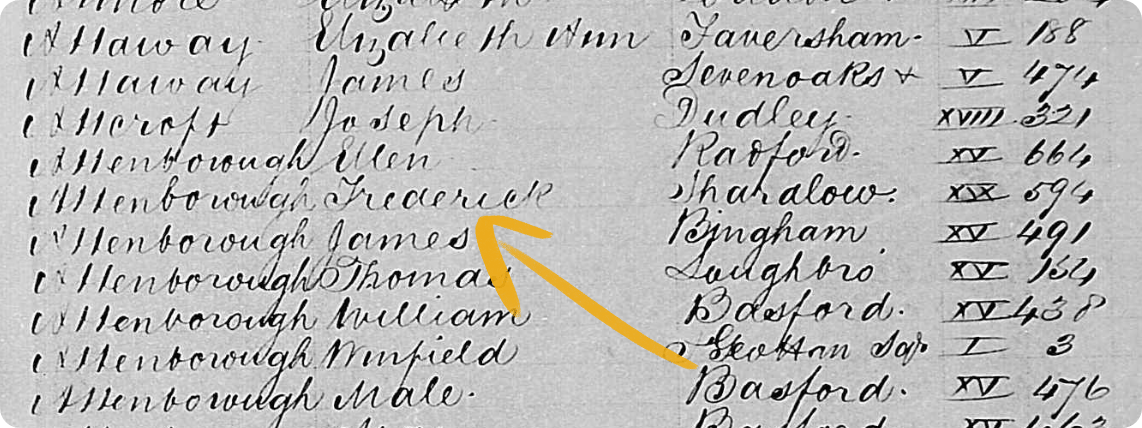 Attaway Elizabeth Ann Faversham V 188
Attaway James Sevenoaks V 474
Attcroft Joseph Dudley XVIII 321
Attenborough Ellen Radford XV 664
Attenborough Frederick Shardlow XIX 594
Attenborough James Bingham XV 491
Attenborough Thomas Loughbro XV
Attenborough William Basford XV 438
Attenborough Winfield I 3
Attenborough Male Basford XV 476